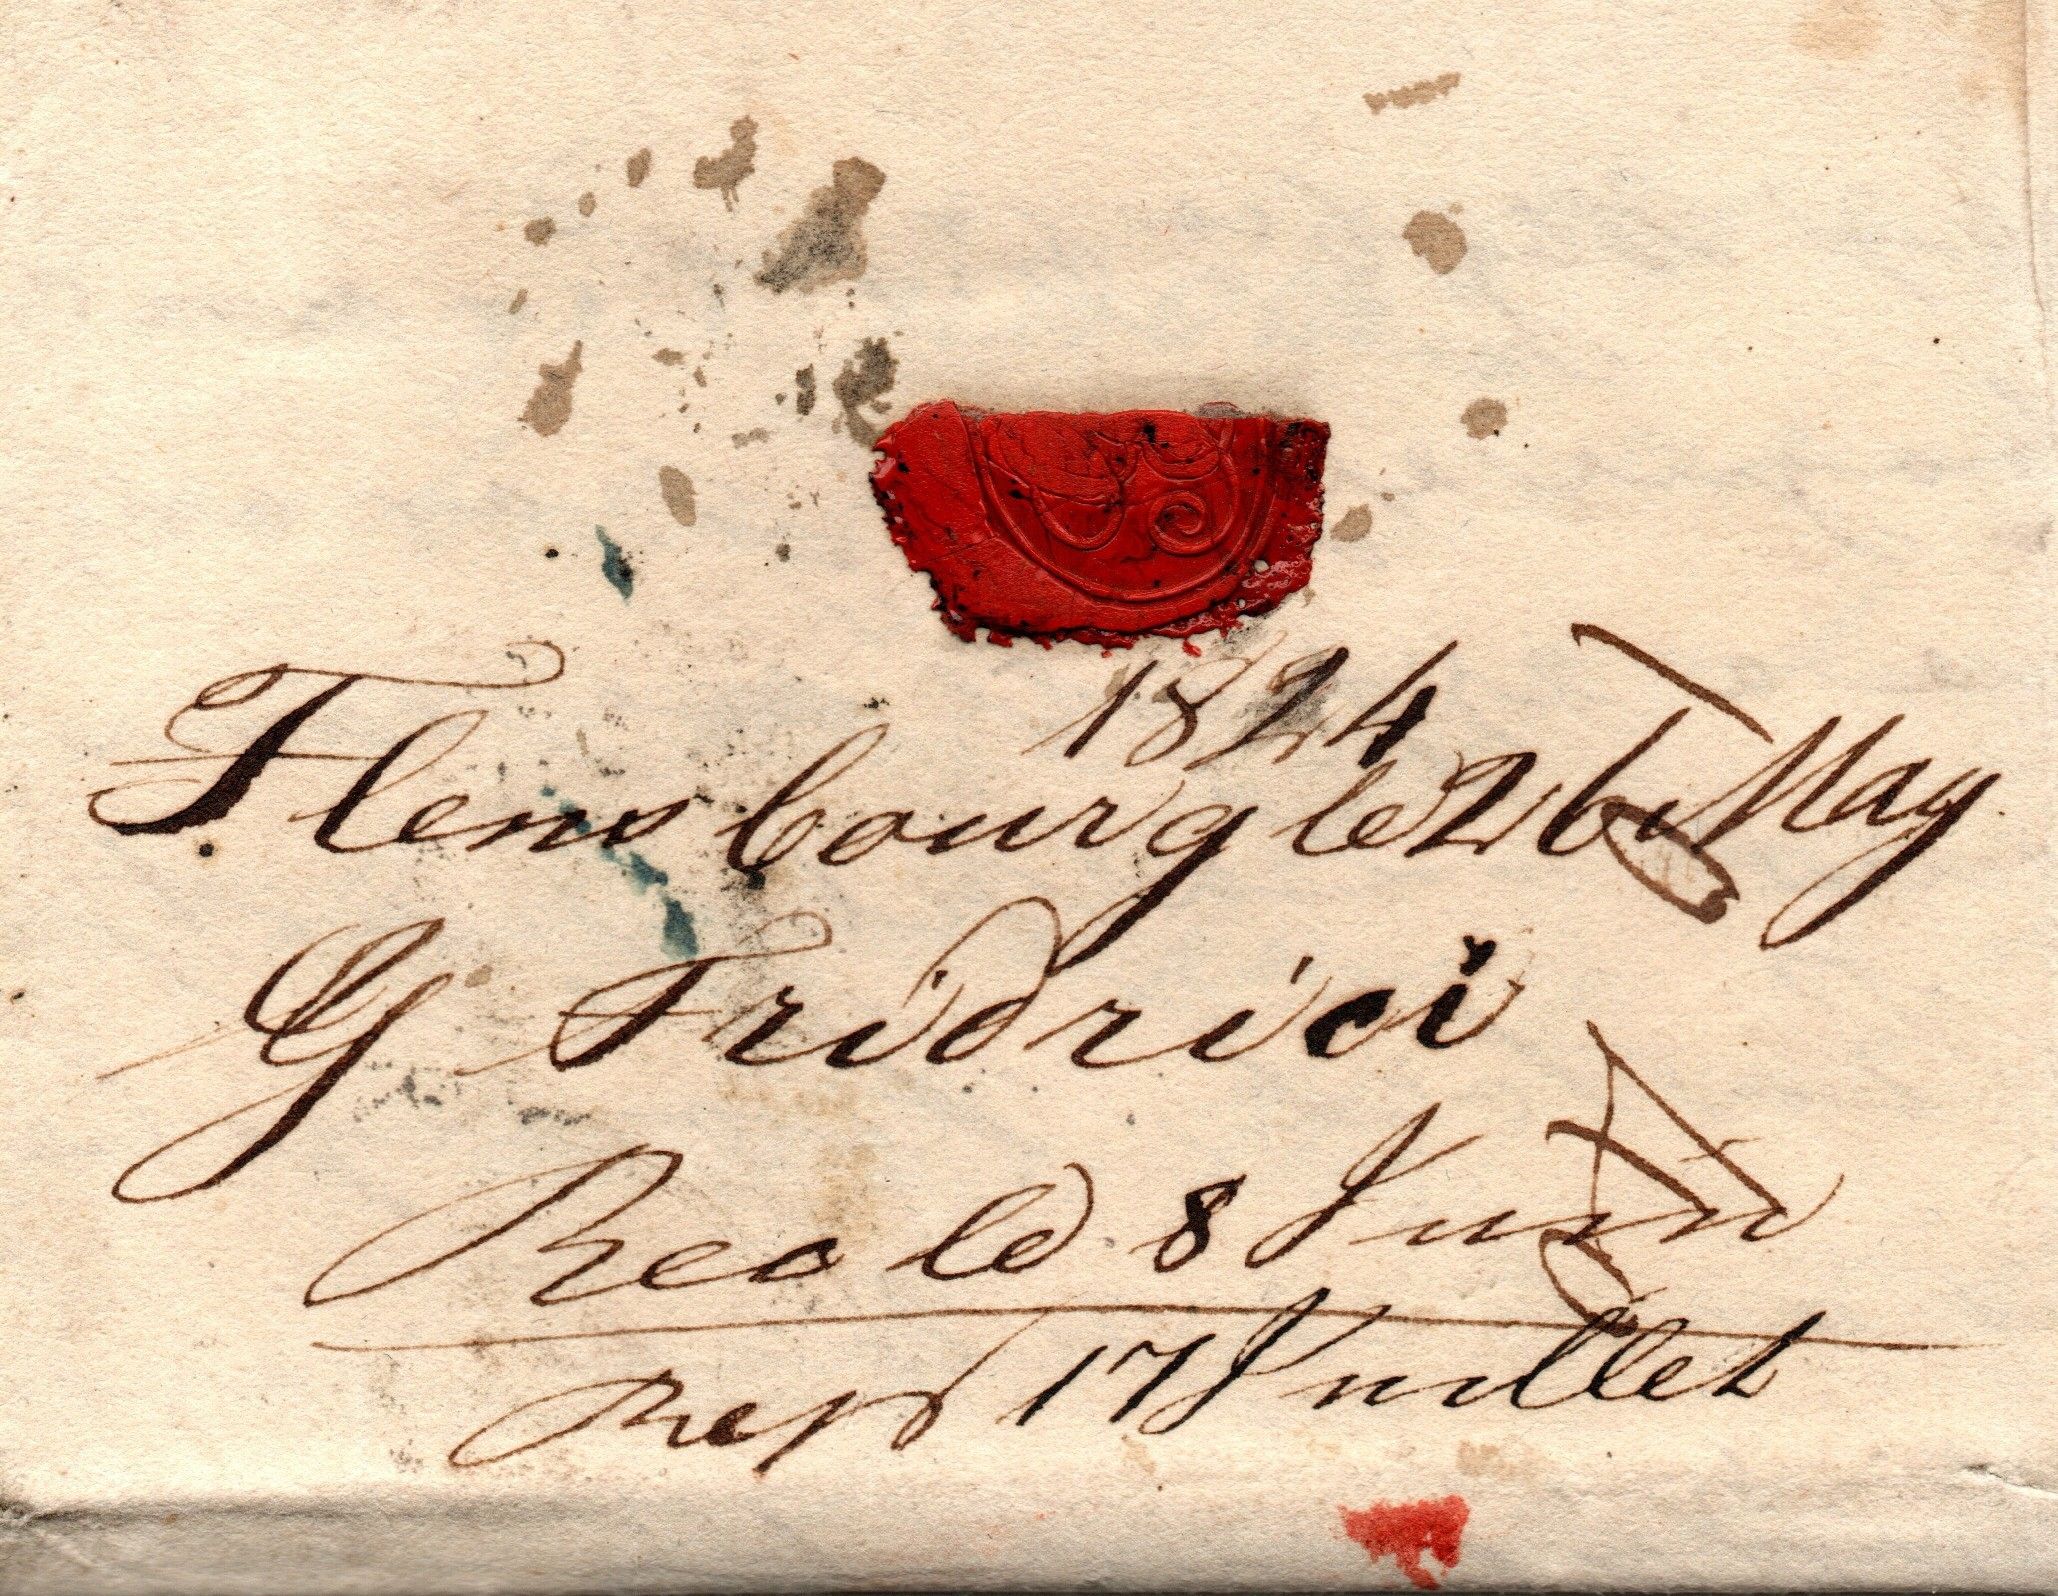 1824
Flensbourg le 26 May
G Fridrici
Rec le 8 Juin
Rep 17 Juillet